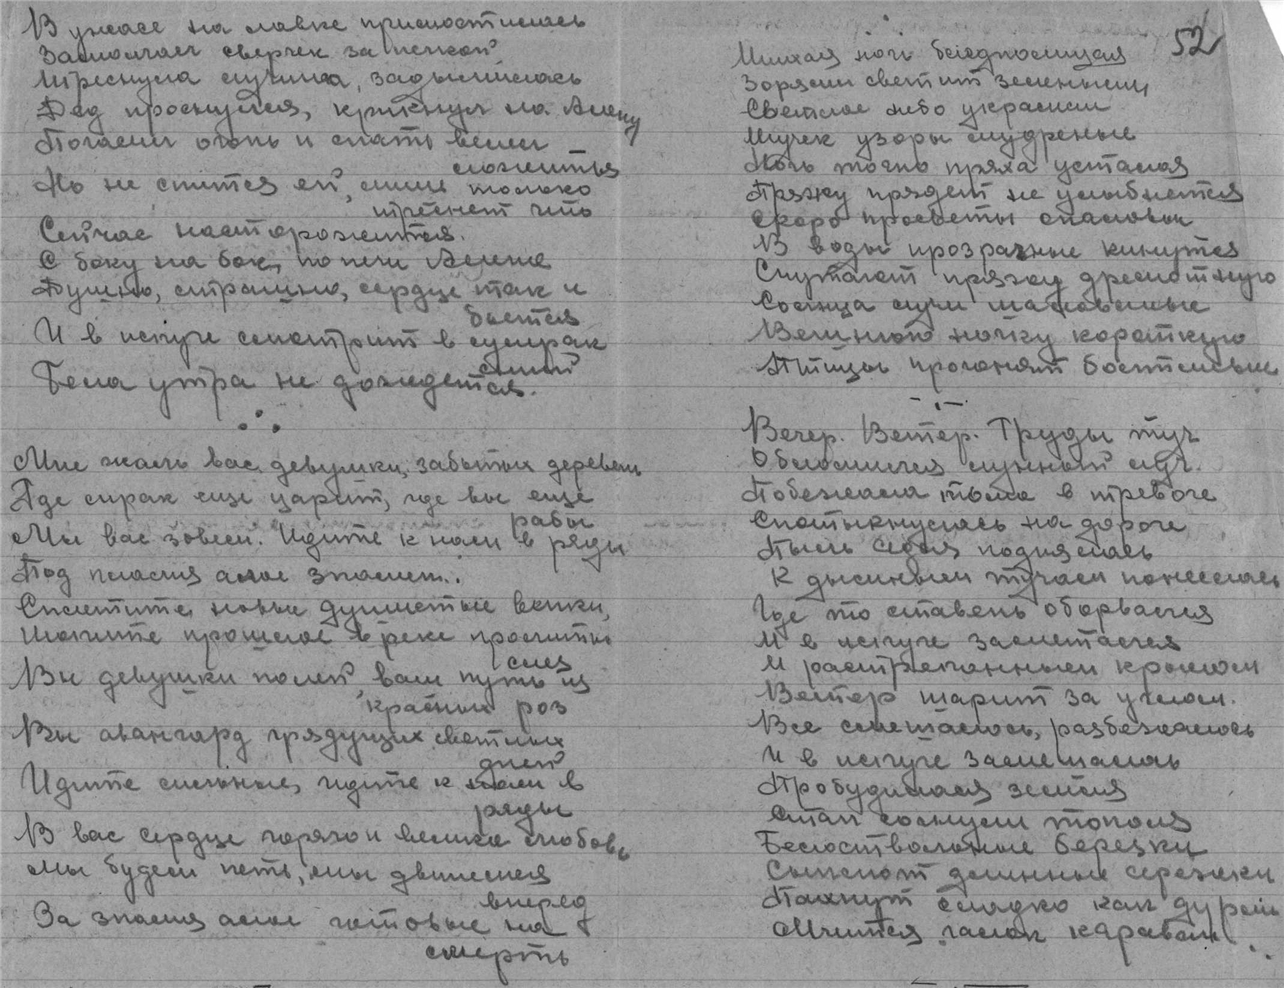 В ужасе на лавке примостилась
Замолчал сверчек за печкой
Треснула лучина, задымилась
Дед проснулся, крикнул на Алену
Погасил огонь и спать велел
ложиться
Но не спится ей, лишь только
треснет что
Сейчас насторожится.
С боку на бок, по печи Алене
Душно, страшно, сердце так и
бьется
И в испуге смотрит в сумрак
синий
Бела утра не дождется.
Мне жаль вас девушки, забытых деревень
Где мрак еще царит, где вы еще
рабы
Мы вас зовем. Идите к нам в ряды
Под пламя алое знамен..
Сплетите новые душистые венки,
Шагните прошлое в реке
Вы девушки полей, ваш путь из
красных роз
Вы авангард грядущих светлых
дней
Идите смелые, идите к нам в
ряды
В вас сердце горячо и велика любовь
Мы будем петь, мы двинемся
вперед
За знамя алое готовые на
смерть
52
Тихая ночь бледнолицая
Зорями светит зелеными,
Светлое небо украсили
Тучек узоры мудреные
Ночь точно пряха усталая
Пряжу прядет не улыбнется
Скоро просветы
В воды прозрачные кинутся
Спутают пряжу дремотную
Солнца лучи шаловливые
Вешнюю ночку короткую
Птицы прогонят болтливые
Вечер. Ветер. Груды туч
Обломился лунный луч.
Побежала тьма в тревоге
Спотыкнулась на дороге
Пыль седая поднялась
К дымным тучам понеслась
Где то ставень оборвался
И в испуге заметался
И растрепанным крылом
Ветер шарит за углом.
Все смешалось, разбежалось
И в испуге заметалась
Пробудилася земля
Стан сомкнули тополя
Белоствольные березки
Сыплют длинные сережки
Пахнут сладко как дурман
Мчится галок караван..